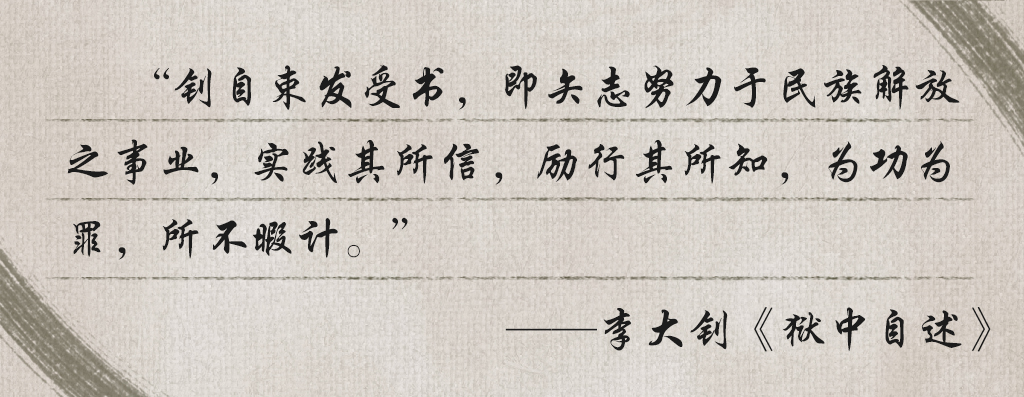 “钊自束发受书，即矢志努力于民族解放
之事业，实践其所信，励行其所知，为功为
罪，所不暇计。”
——李大钊《狱中自述》